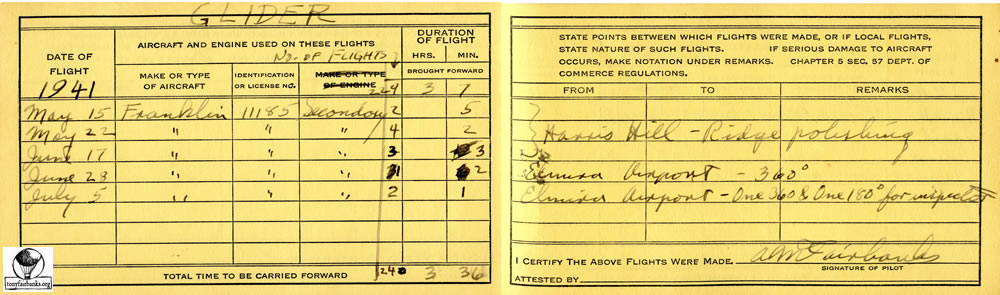 GLIDER
DATE OF FLIGHT
1941
AIRCRAFT AND ENGINE USED ON THESE FLIGHTS
No. OF FLIGHTS
DURATION OF FLIGHT
HRS. MIN.
MAKE OR TYPE OF AIRCRAFT
IDENTIFICATION OR LICENSE NO.
MAKE OR TYPE OF ENGINE
BROUGHT FORWARD
229 3 7
May 15 Franklin 11185 Secondary 2 5
May 22 " " " 4 2
June 17 " " " 3 3
June 28 " " " 1 2
July 5 " " " 2 1
TOTAL TIME TO BE CARRIED FORWARD 240 3 36
tonyfairbanks.org
STATE POINTS BETWEEN WHICH FLIGHTS WERE MADE, OR IF LOCAL FLIGHTS,
STATE NATURE OF SUCH FLIGHTS. IF SERIOUS DAMAGE TO AIRCRAFT
OCCURS, MAKE NOTATION UNDER REMARKS. CHAPTER 5 SEC. 57 DEPT. OF
COMMERCE REGULATIONS.
FROM TO REMARKS
Harris Hill - Ridge polishing
Elmira Airport - 360°
Elmira Airport - One 360 & One 180° for inspector
I CERTIFY THE ABOVE FLIGHTS WERE MADE. A M Fairbanks
SIGNATURE OF PILOT
ATTESTED BY